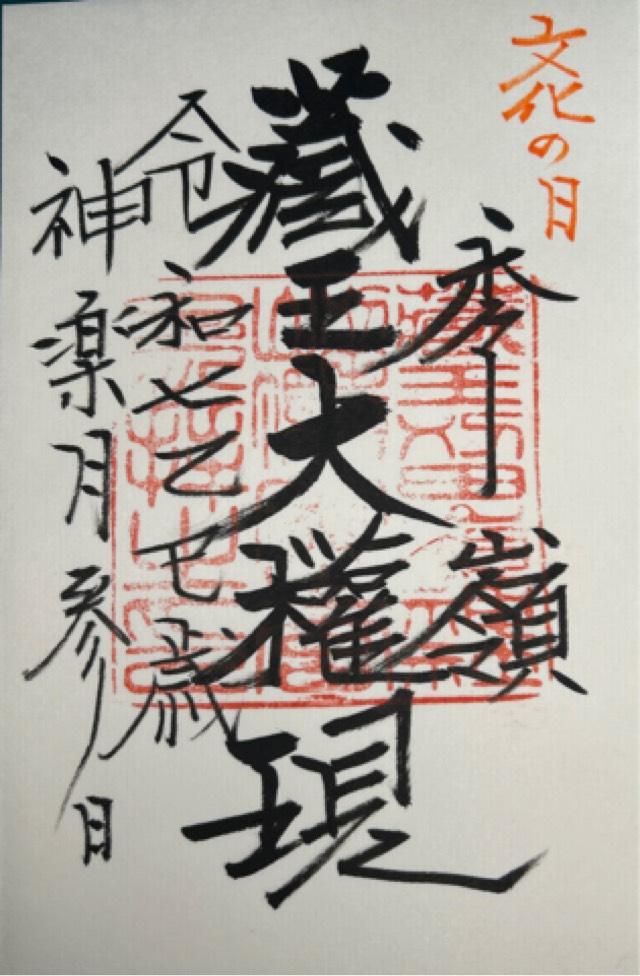 文化の日
秀嶺
藏王大権現
令和七乙巳歳
神楽月参日